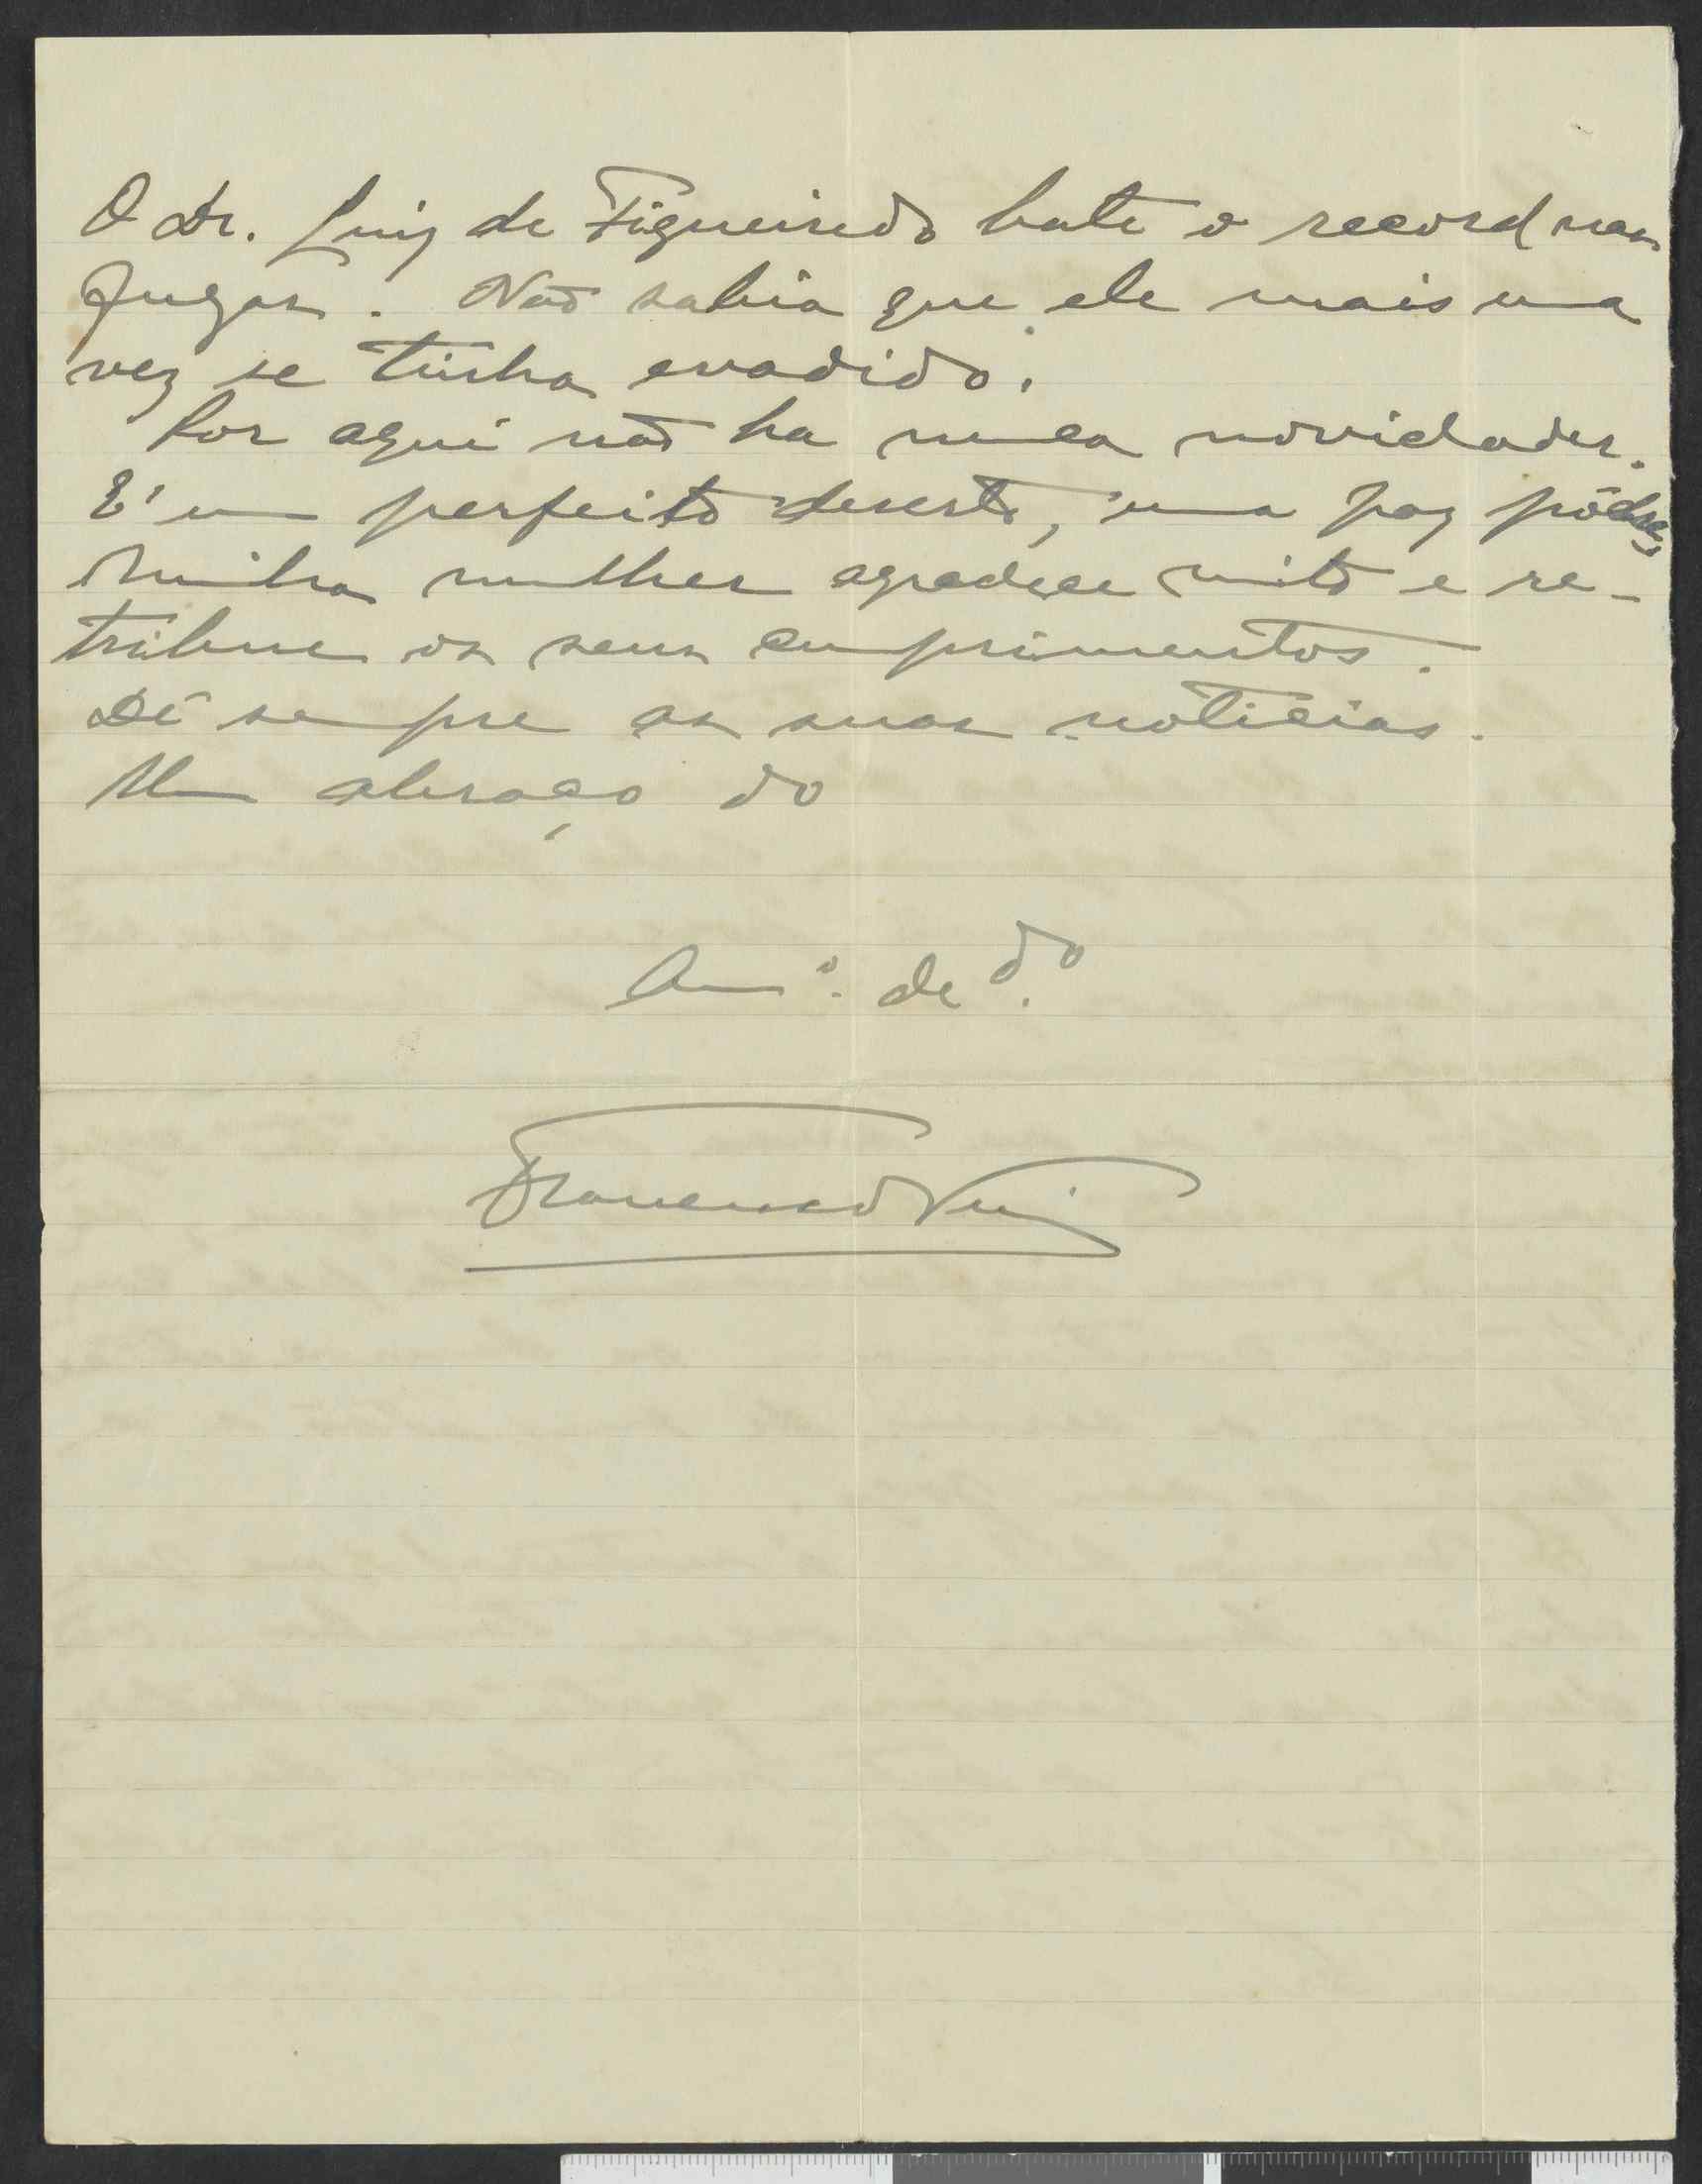 O Dr. Luiz de Figueiredo bate o record nas
fugas. Não sabia que ele mais uma
vez se tinha evadido.
Por aqui não ha nunca novidades.
E' um perfeito deserto, uma paz pôdre.
Minha mulher agradece muito e re-
tribue os seus cumprimentos.
Dê sempre as suas noticias.
Um abraço do
Amº. dedº.